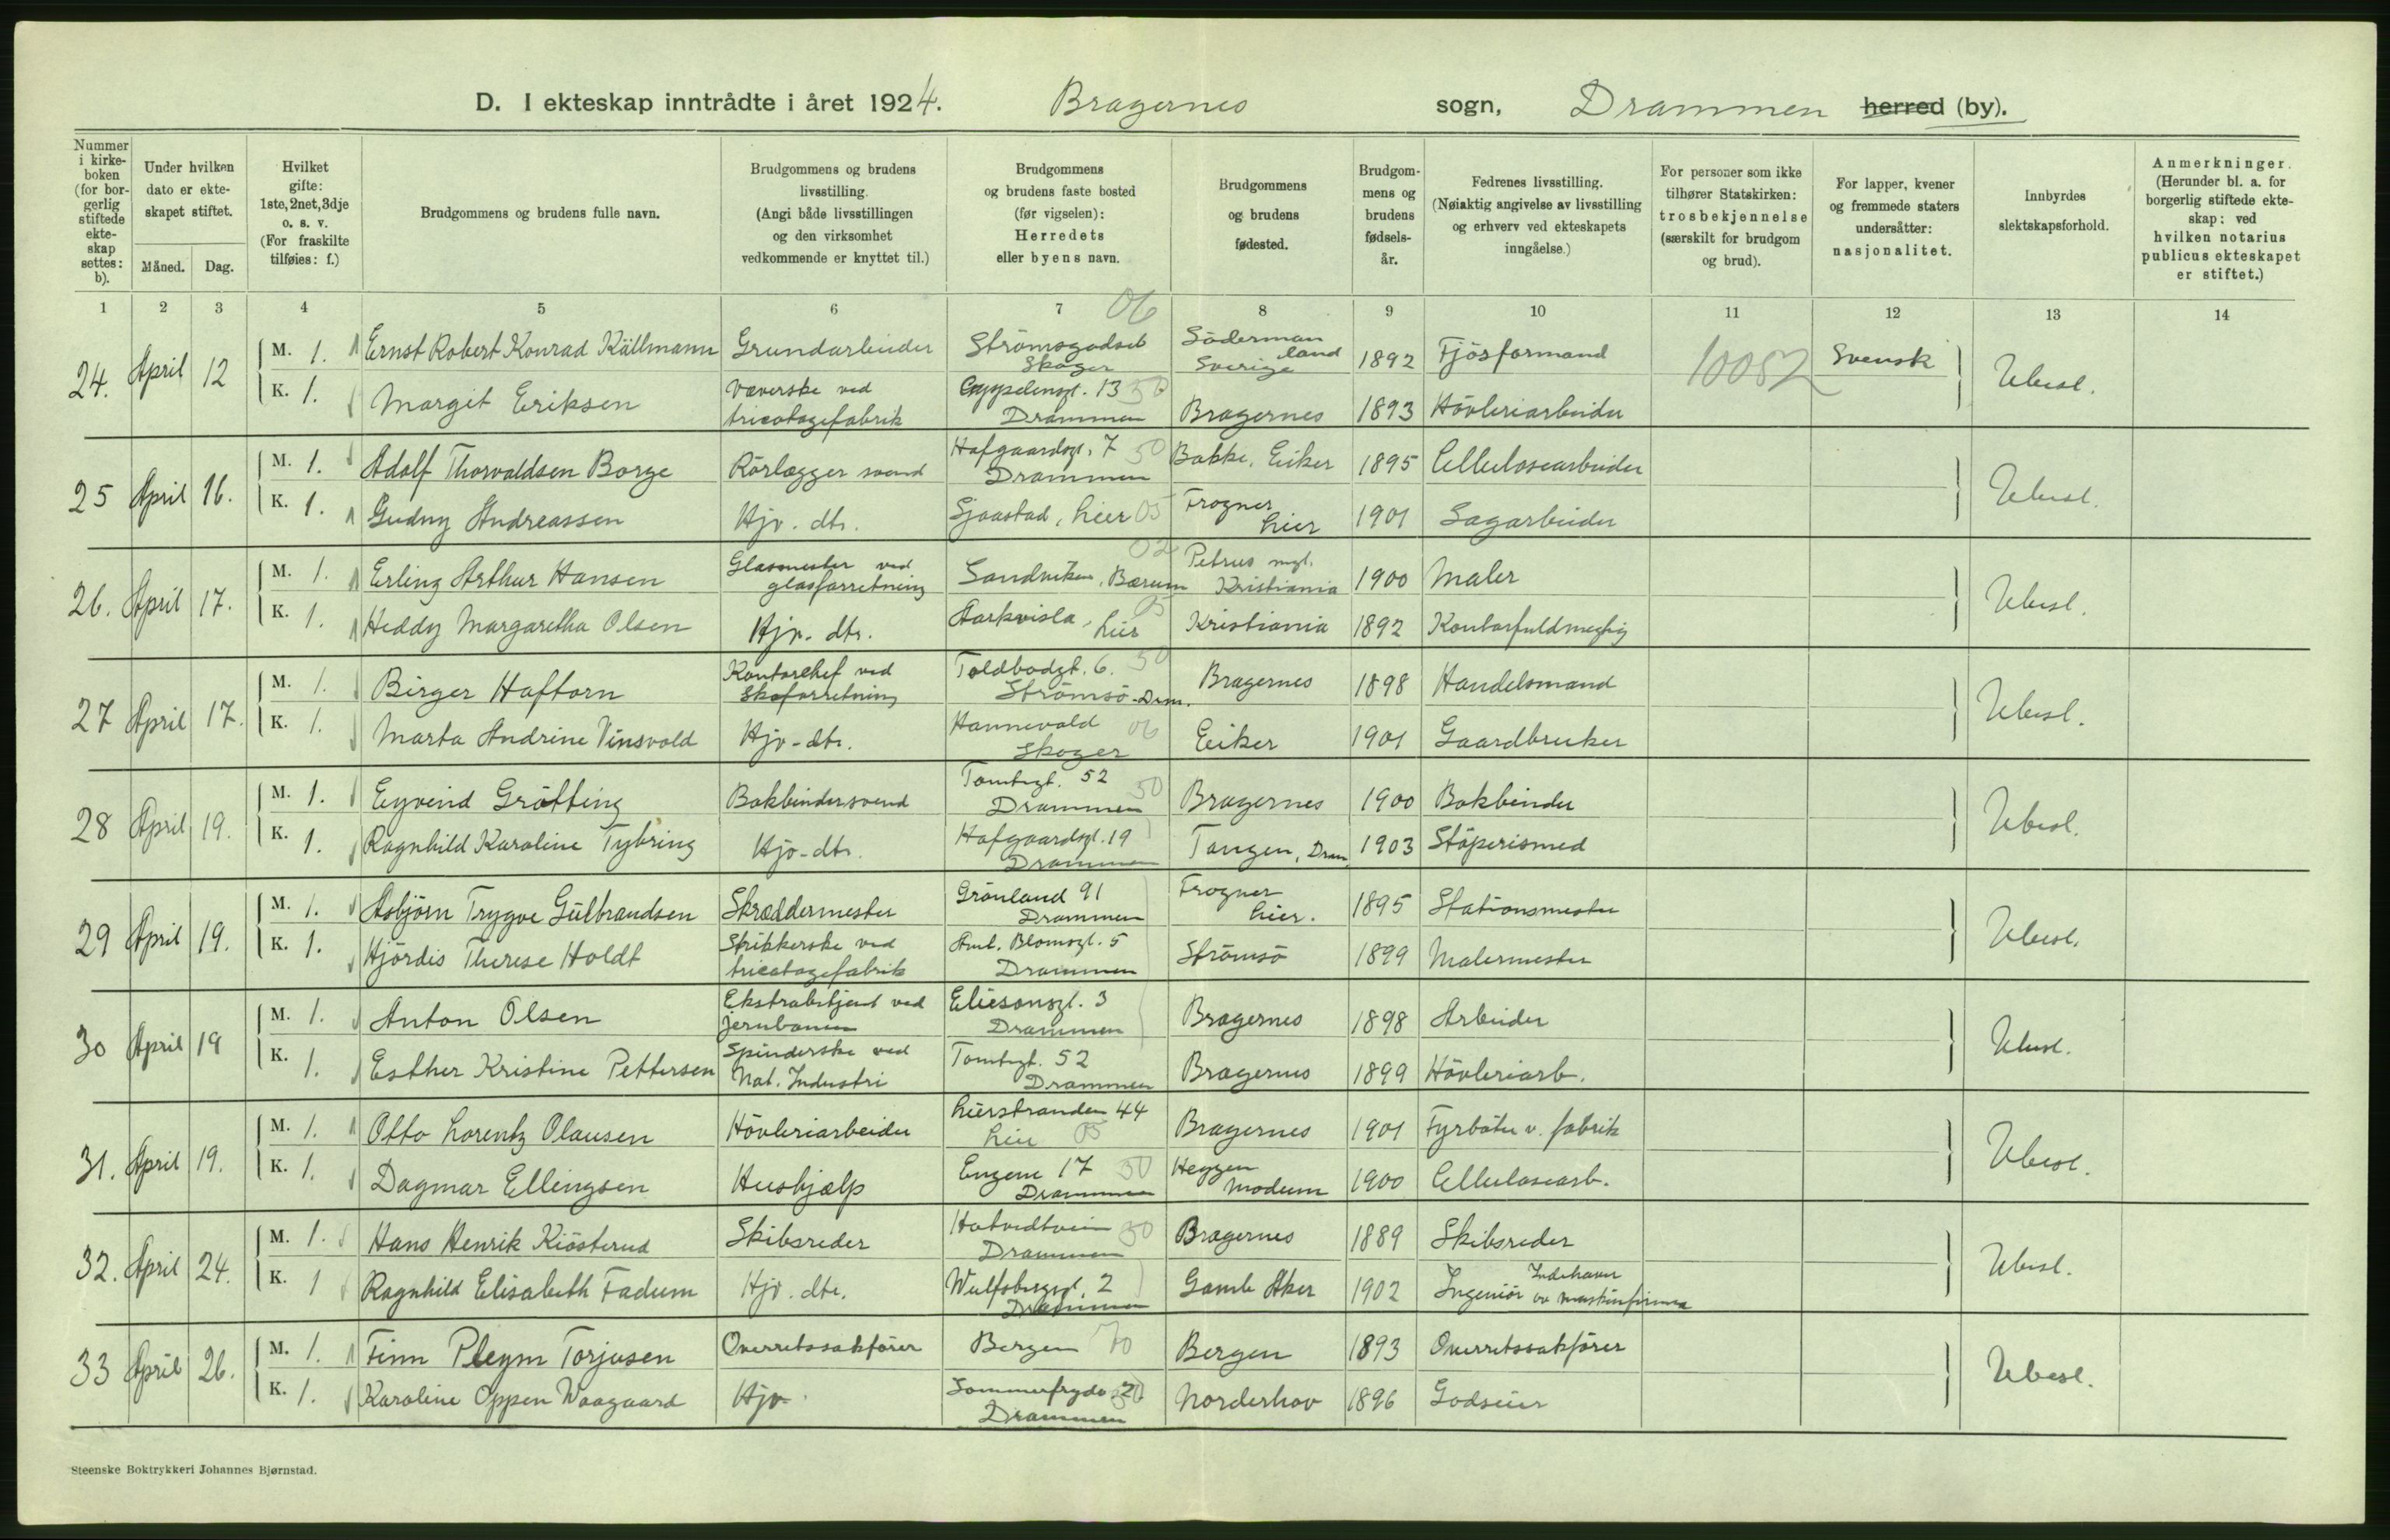 D. I ekteskap inntrådte i året 1924. Bragernes sogn, Drammen herred (by).
Nummer i kirkeboken (for borgerlig stiftede ekteskap settes: b).
Under hvilken dato er ekteskapet stiftet.
Måned. Dag.
Hvilket gifte: 1ste, 2net, 3dje o. s. v. (For fraskilte tilføies: f.)
Brudgommens og brudens fulle navn.
Brudgommens og brudens livsstilling. (Angi både livsstillingen og den virksomhet vedkommende er knyttet til.)
Brudgommens og brudens faste bosted (før vigselen): Herredets eller byens navn.
Brudgommens og brudens fødested.
Brudgommens og brudens fødselsår.
Fedrenes livsstilling. (Nøiaktig angivelse av livsstilling og erhverv ved ekteskapets inngåelse.)
For personer som ikke tilhører Statskirken: trosbekjennelse (særskilt for brudgom og brud).
For lapper, kvener og fremmede staters undersåtter: nasjonalitet.
Innbyrdes slektskapsforhold.
Anmerkninger. (Herunder bl. a. for borgerlig stiftede ekteskap: ved hvilken notarius publicus ekteskapet er stiftet.)
1 2 3 4 5 6 7 8 9 10 11 12 13 14
24. April 12 M. 1. Ernst Robert Konrad Källmann Grundarbeider Strömsgodset Skoger 06 Söderman land Sverige 1892 Fjösformand 10052 Svensk Ubesl.
K. 1. Margit Eriksen Væverske ved tricotagefabrik Cappelensgt. 13 50 Drammen Bragernes 1893 Hövleriarbeider
25 April 16. M. 1. Adolf Thorvaldsen Borge Rörlægger svend Hofgaardsgt. 7 50 Drammen Bakke, Eiker 1895 Cellulosearbeider Ubesl.
K. 1. Gudny Andreassen Hjv. dtr. Sjaastad, Lier 05 Frogner Lier 1901 Sagarbeider
26. April 17. M. 1. Erling Arthur Hansen Glasmester ved glasforretning Sandviken, Bærum 02 Petrus mgt. Kristiania 1900 Maler Ubesl.
K. 1. Heddy Margaretha Olsen Hjv. dtr. Aarkvisla, Lier 05 Kristiania 1892 Kontorfuldmegtig
27 April 17. M. 1. Birger Haftorn Kontorchef ved Skoforretning Toldbodgt. 6. 50 Strömsö-Drm. Bragernes 1898 Handelsmand Ubesl.
K. 1. Marta Andrine Vinsvold Hjv-dtr. Hannevold 06 Skoger Eiker 1901 Gaardbruker
28 April 19. M. 1. Eyvind Grötting Bokbindersvend Tomtegt. 52 50 Drammen Bragernes 1900 Bokbinder Ubesl.
K. 1. Ragnhild Karoline Tybring Hjv-dtr. Hofgaardsgt. 19 Drammen Tangen, Dram. 1903 Stöperismed
29 April 19. M. 1. Asbjörn Trygve Gulbrandsen Skræddermester Grönland 91 Drammen Frogner Lier. 1895 Stationsmester Ubesl.
K. 1. Hjördis Therese Holdt Strikkerske ved tricotagefabrik Aml. Blomsgt. 5 Drammen Strömsö 1899 Malermester
30 April 19 M. 1. Anton Olsen Ekstrabetjent ved jernbanen Eliesonsgt. 3 Drammen Bragernes 1898 Arbeider Ubesl.
K. 1. Esther Kristine Pettersen Spinderske ved Nat. Industri Tomtegt. 52 Drammen Bragernes 1899 Hövleriarb.
31. April 19. M. 1. Otto Lorentz Olausen Hövleriarbeider Lierstranden 44 Lier 05 Bragernes 1901 Fyrböter v. fabrik Ubesl.
K. 1. Dagmar Ellingsen Hushjælp Engene 17 50 Drammen Heggen Modum 1900 Cellulosearb.
32. April 24. M. 1. Hans Henrik Kiösterud Skibsreder Hotvedtveien 50 Drammen Bragernes 1889 Skibsreder Ubesl.
K. 1 Ragnhild Elisabeth Fadum Hjv. dtr. Wulfsbergsgt. 2 Drammen Gamle Aker 1902 Ingeniör Indehaver av maskinfirma
33 April 26. M. 1. Finn Pleym Torjusen Overretssakförer Bergen 70 Bergen 1893 Overretssakförer Ubesl.
K. 1. Karoline Oppen Waagaard Hjv. Sommerfrydv. 2 50 Drammen Norderhov 1896 Godseier
Steenske Boktrykkeri Johannes Bjørnstad.